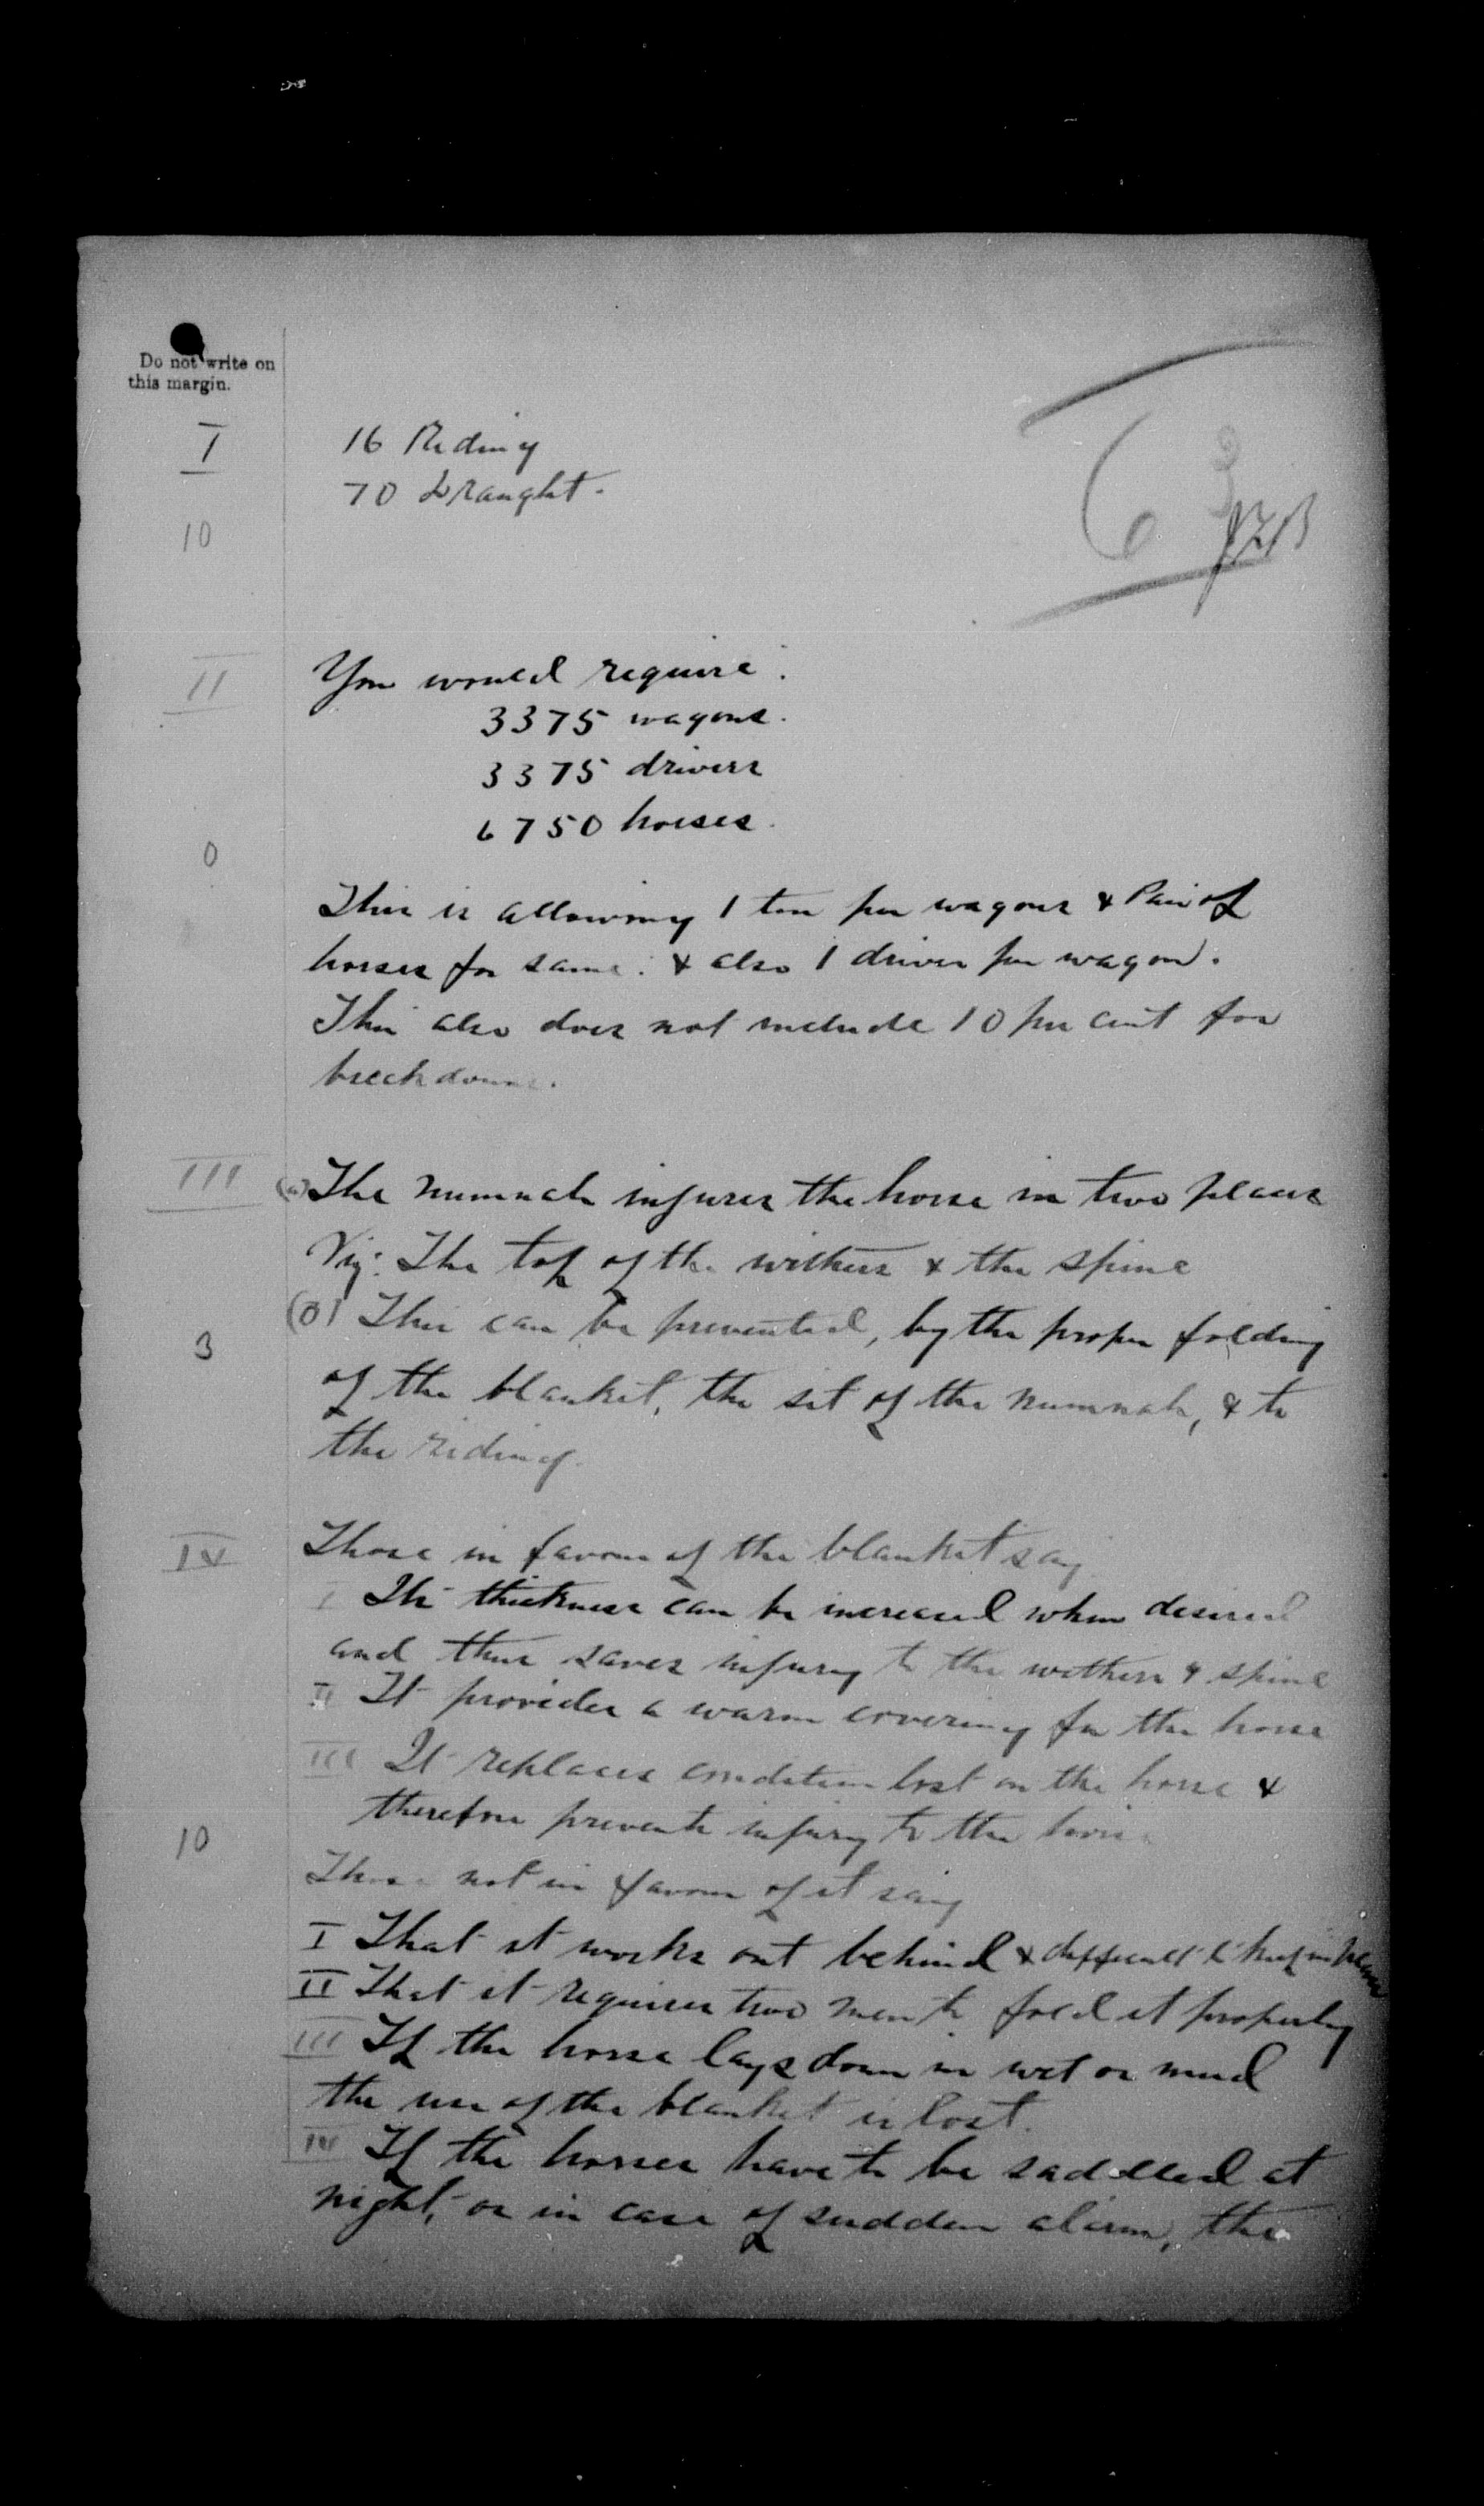 Do not write on
this margin.
I
16 Riding
70 Draught.
10
63
II
You would require:
3375 wagons.
3375 drivers
6750 horses.
0
This is allowing 1 ton per wagons & Pair of
horses for same: & also 1 driver per wagon.
This also does not include 10 per cent for
breckdowns.
III
(a) The numnah injures the horse in two places
Viz: The top of the withers & the spine
(b) This can be prevented, by the proper folding
3
of the blanket, the set of the numnah, & to
the riding.
IV
Those in favour of the blanket say
I The thickness can be increased when desired
and thus saves injury to the withers & spine
II It provides a warm covering for the horse
III It replaces condition lost on the horse &
therefore prevents injury to the horse
10
Those not in favour of it say
I That it works out behind & difficult to keep in place
II That it requires two men to fold it properly
III If the horse lays down in wet or mud
the use of the blanket is lost.
IV If the horses have to be saddled at
night, or in case of sudden alarm, the